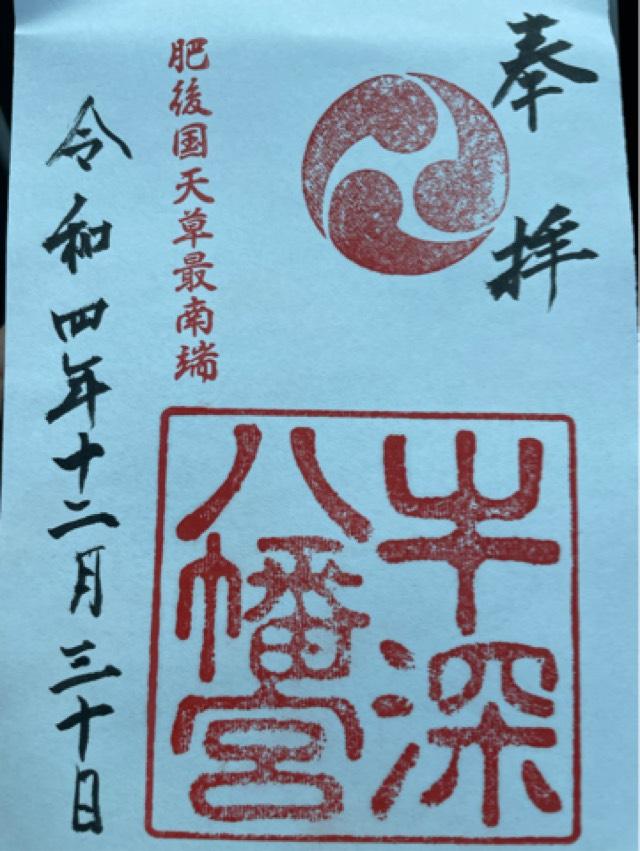 奉拝
牛深
八幡宮
肥後国天草最南端
令和四年十二月三十日